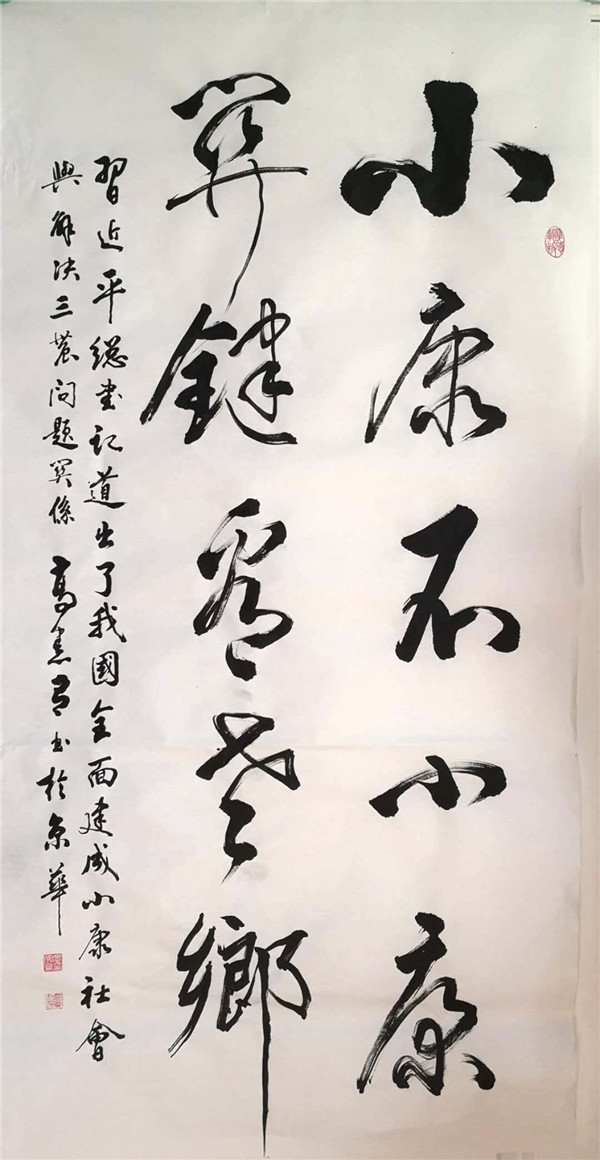 小康不小康
關鍵看老鄉
習近平總書記道出了我國全面建成小康社會
與解决三農問題關係 高書於京華